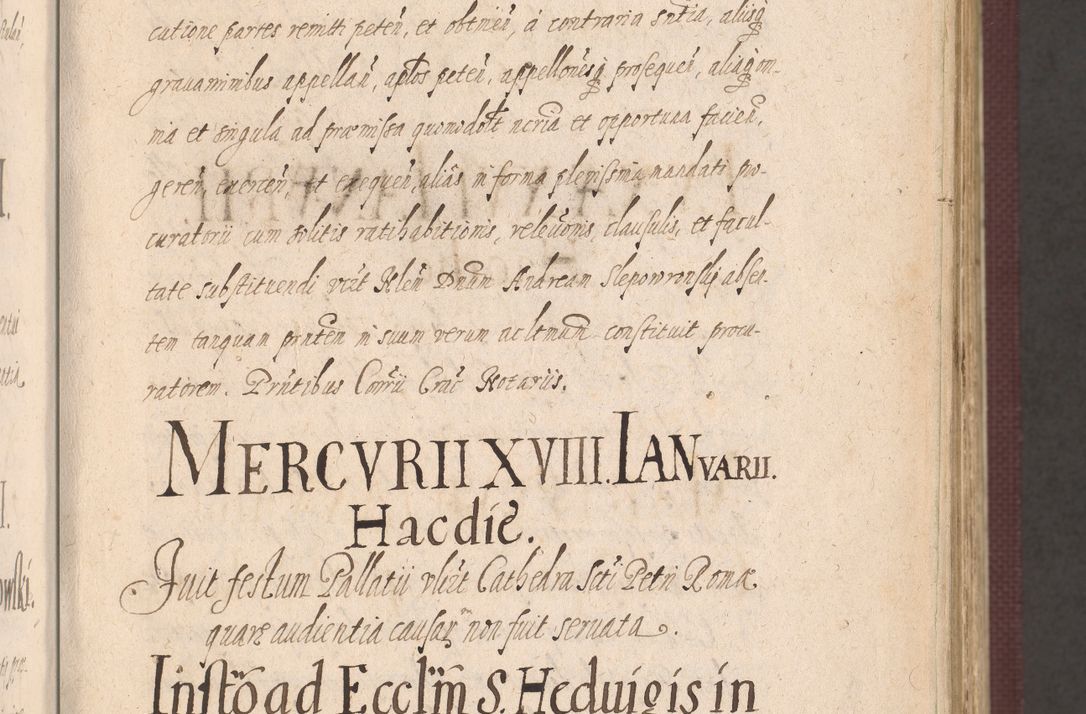 cutione partes remitti peteñ, et obtineñ, à contraria sñtia, alijsq
grauaminibus appellañ, aplos peteñ, appellõnesq prosequeñ, aliaq om-
nia et singula ad præmissa quomodolt ncria et opportuna facieñ,
gereñ, exerceñ, et exequeñ, aliàs in forma plenissima mandati pro-
curatorii cum solitis ratihabitionis, releuõnis, clausulis, et facul-
tate substituendi vczt Dnum Andream Slepowronskj absen-
tem tanquam pnñtem in suum verum ac ltmum constituit procu-
ratorem. Prñtibus Crac Notariis.
MERCVRII XVIII. IANVARII.
Hac die.
Fuit festum Pallatii vlczt Cathedra Scti Petri Romæ
quare audientia causarum non fuit seruata.
Instõ ad Ecclim S. Heduigis in
owski.